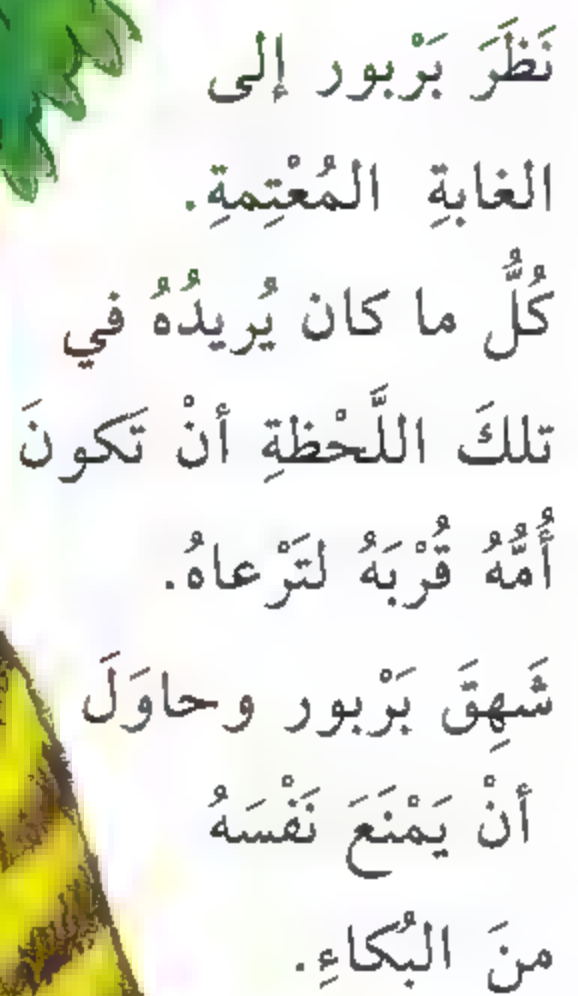 نَظَرَ بَرْبور إلى
الغابةِ المُعْتِمةِ.
كُلُّ ما كان يُريدُهُ في
تلكَ اللَّحْظةِ أنْ تَكونَ
أُمُّهُ قُرْبَهُ لتَرْعاهُ.
شَهِقَ بَرْبور وحاوَلَ
أنْ يَمْنَعَ نَفْسَهُ
منَ البُكاءِ.